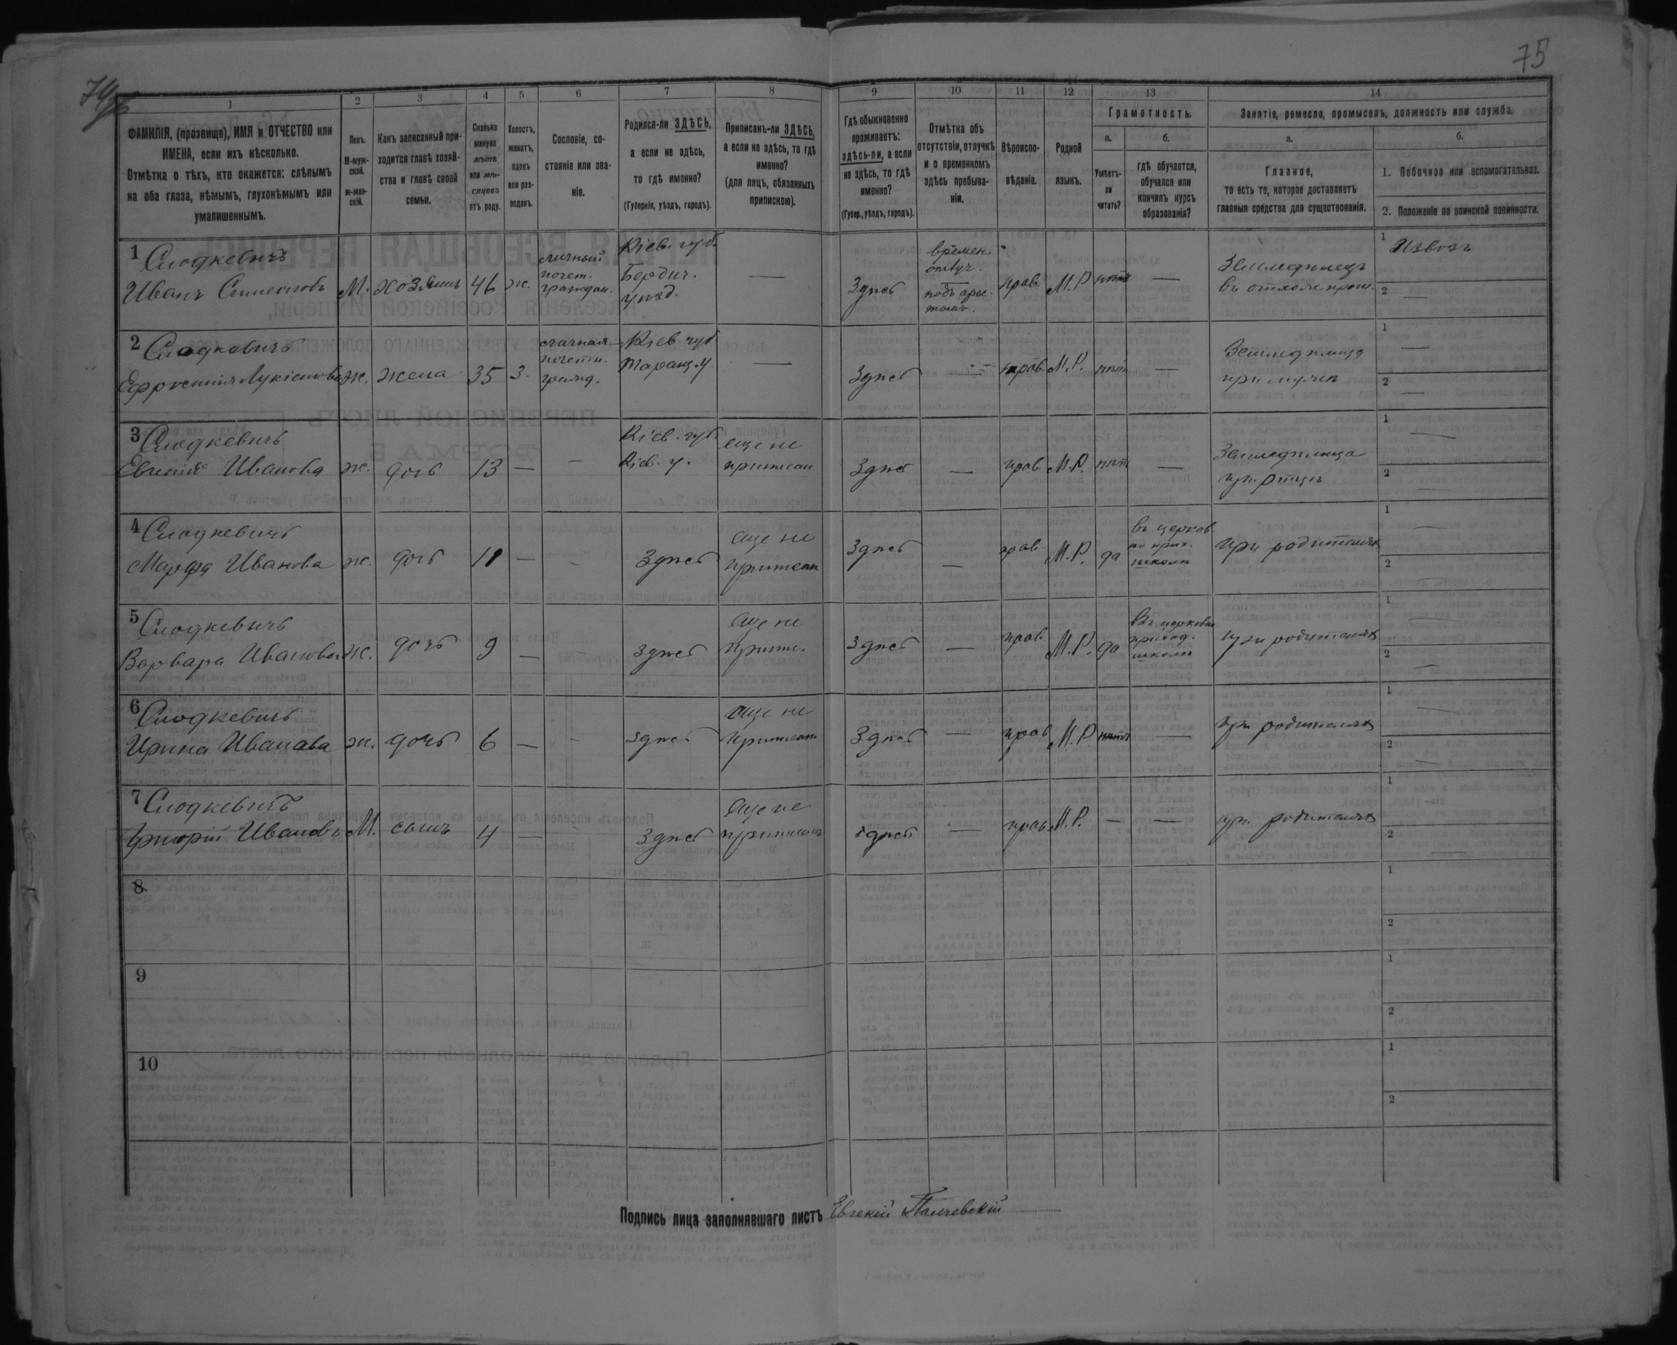 75
1
2
3
4
5
6
7
8
9
10
11
12
13
14
ФАМИЛІЯ, (прозвище), ИМЯ и ОТЧЕСТВО или
ИМЕНА, если ихъ нѣсколько.
Отмѣтка о тѣхъ, кто окажется: слѣпымъ
на оба глаза, нѣмымъ, глухонѣмымъ или
умалишеннымъ.
Полъ.
М-муж-
ской.
ж-жен-
скій.
Какъ записанный при-
ходится главѣ хозяй-
ства и главѣ своей
семьи.
Сколько
минуло
лѣтъ
или мѣ-
сяцевъ
отъ роду.
Холостъ,
женатъ,
вдовъ
или раз-
веденъ.
Сословіе, со-
стояніе или зва-
ніе.
Родился-ли ЗДѢСЬ,
а если не здѣсь,
то гдѣ именно?
(Губернія, уѣздъ, городъ).
Приписанъ-ли ЗДѢСЬ,
а если не здѣсь, то гдѣ
именно?
(для лицъ, обязанныхъ
припискою).
Гдѣ обыкновенно
проживаетъ:
здѣсь-ли, а если
не здѣсь, то гдѣ
именно?
(Губер., уѣздъ, городъ).
Отмѣтка объ
отсутствіи, отлучкѣ
и о временномъ
здѣсь пребыва-
ніи.
Вѣроиспо-
вѣданіе.
Родной
языкъ.
Грамотность.
а.
б.
Умѣетъ-
ли
читать?
гдѣ обучается,
обучался или
кончилъ курсъ
образованія?
Занятіе, ремесло, промыселъ, должность или служба.
а.
б.
Главное,
то есть то, которое доставляетъ
главныя средства для существованія.
1. Побочное или вспомогательное.
2. Положеніе по воинской повинности.
1 Слодкевичъ
Иванъ Симеоновъ М. хозяинъ 46 ж.
личный
почет.
граждан.
Кіев. губ.
Бердич.
уѣзд.
—
Здѣсь
времен.
отлуч.
прав. М.Р. нѣтъ —
Земледѣлецъ
1 Извозъ
2 —
2 Слодкевичъ
Ефросинія Лукіянова ж. жена 35 З.
личная
почетн.
гражд.
Кіев. губ
Таращ. у
—
Здѣсь — прав. М.Р. нѣтъ —
Земледѣлица
при мужѣ
1 —
2 —
3 Слодкевичъ
Евгенія Иванова ж. дочь 13 — —
Кіев. губ.
Кіев. у.
еще не
приписан
Здѣсь — прав. М.Р. нѣтъ —
Земледѣлица
при отцѣ
1 —
2 —
4 Слодкевичъ
Марфа Иванова ж. дочь 11 — — Здѣсь
еще не
приписан
Здѣсь — прав М.Р. да
въ церков
но прих.
школѣ
при родителяхъ
1 —
2 —
5 Слодкевичъ
Варвара Иванова ж. дочь 9 — Здѣсь
еще не
припис.
Здѣсь — прав. М.Р. да
Въ церковн
приход.
школѣ
при родителяхъ
1 —
2 —
6 Слодкевичъ
Ирина Иванова ж. дочь 6 — — Здѣсь
еще не
приписан
Здѣсь — прав. М.Р. нѣтъ —
при родителяхъ
1 —
2 —
7 Слодкевичъ
Григорій Ивановъ М. сынъ 4 — — Здѣсь
еще не
приписанъ
Здѣсь — прав. М.Р. — —
при родителяхъ
1 —
2 —
8
1
2
9
1
2
10
1
2
Подпись лица заполнявшаго листъ Евгеній